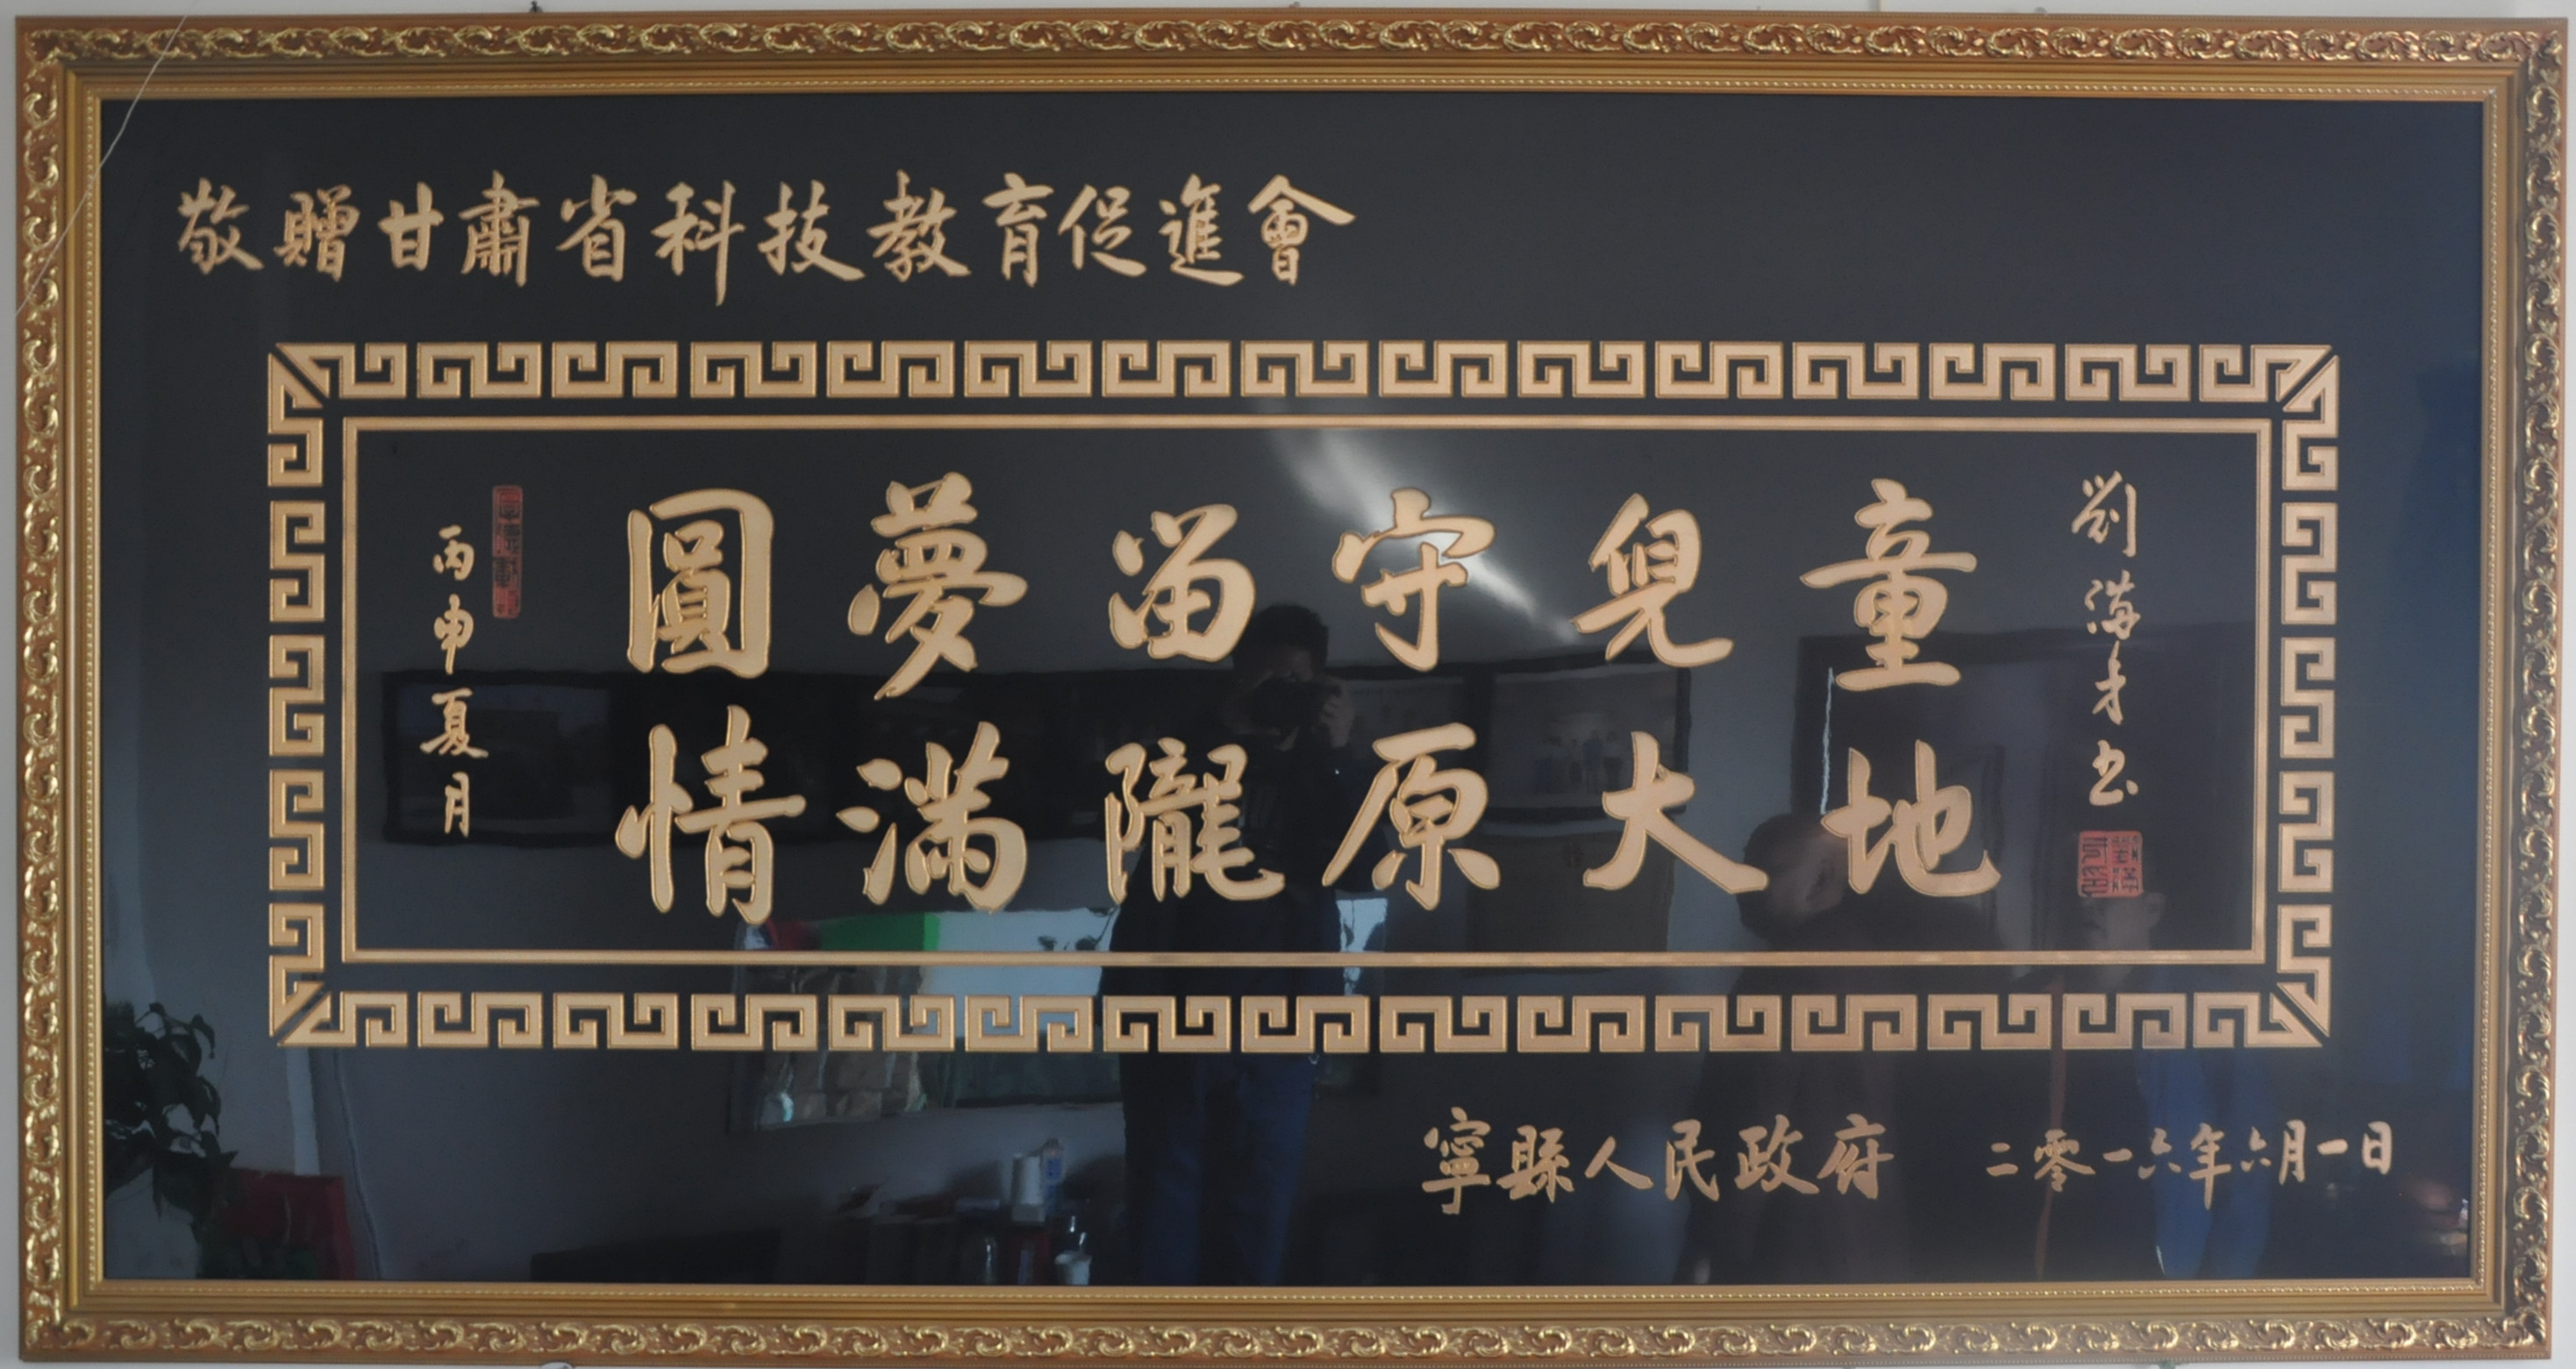 敬贈甘肅省科技教育促進會
丙申夏月
圓夢留守兒童
情滿隴原大地
劉滿才书
寧縣人民政府 二零一六年六月一日